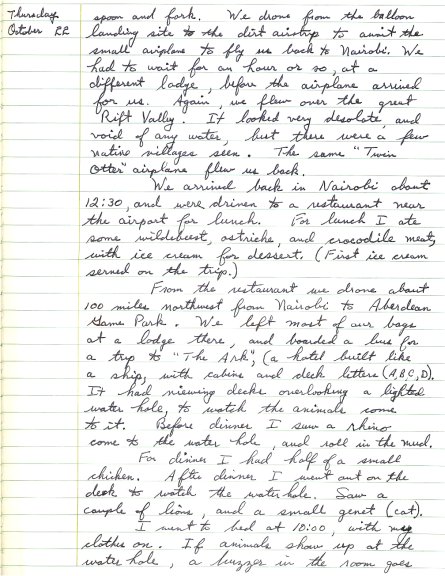 Thursday
October 22
spoon and fork. We drove from the balloon
landing site to the dirt airstrip to await the
small airplane to fly us back to Nairobi. We
had to wait for an hour or so, at a
different lodge, before the airplane arrived
for us. Again, we flew over the great
Rift Valley. It looked very desolate and
void of any water, but there were a few
native villages seen. The same "Twin
Otter" airplane flew us back.
We arrived back in Nairobi about
12:30, and were driven to a restaurant near
the airport for lunch. For lunch I ate
some wildebeest, ostriche, and crocodile meat,
with ice cream for dessert. (First ice cream
served on the trip.)
From the restaurant we drove about
100 miles northwest from Nairobi to Aberdean
Game Park. We left most of our bags
at a lodge there, and boarded a bus for
a trip to "The Ark" (a hotel built like
a ship, with cabins and deck letters (A,B,C,D).
It had viewing decks overlooking a lighted
water hole, to watch the animals come
to it. Before dinner I saw a rhino
come to the water hole, and roll in the mud.
For dinner I had half of a small
chicken. After dinner I went out on the
deck to watch the water hole. Saw a
couple of lions, and a small genet (cat).
I went to bed at 10:00, with my
clothes on. If animals show up at the
water hole, a buzzer in the room goes